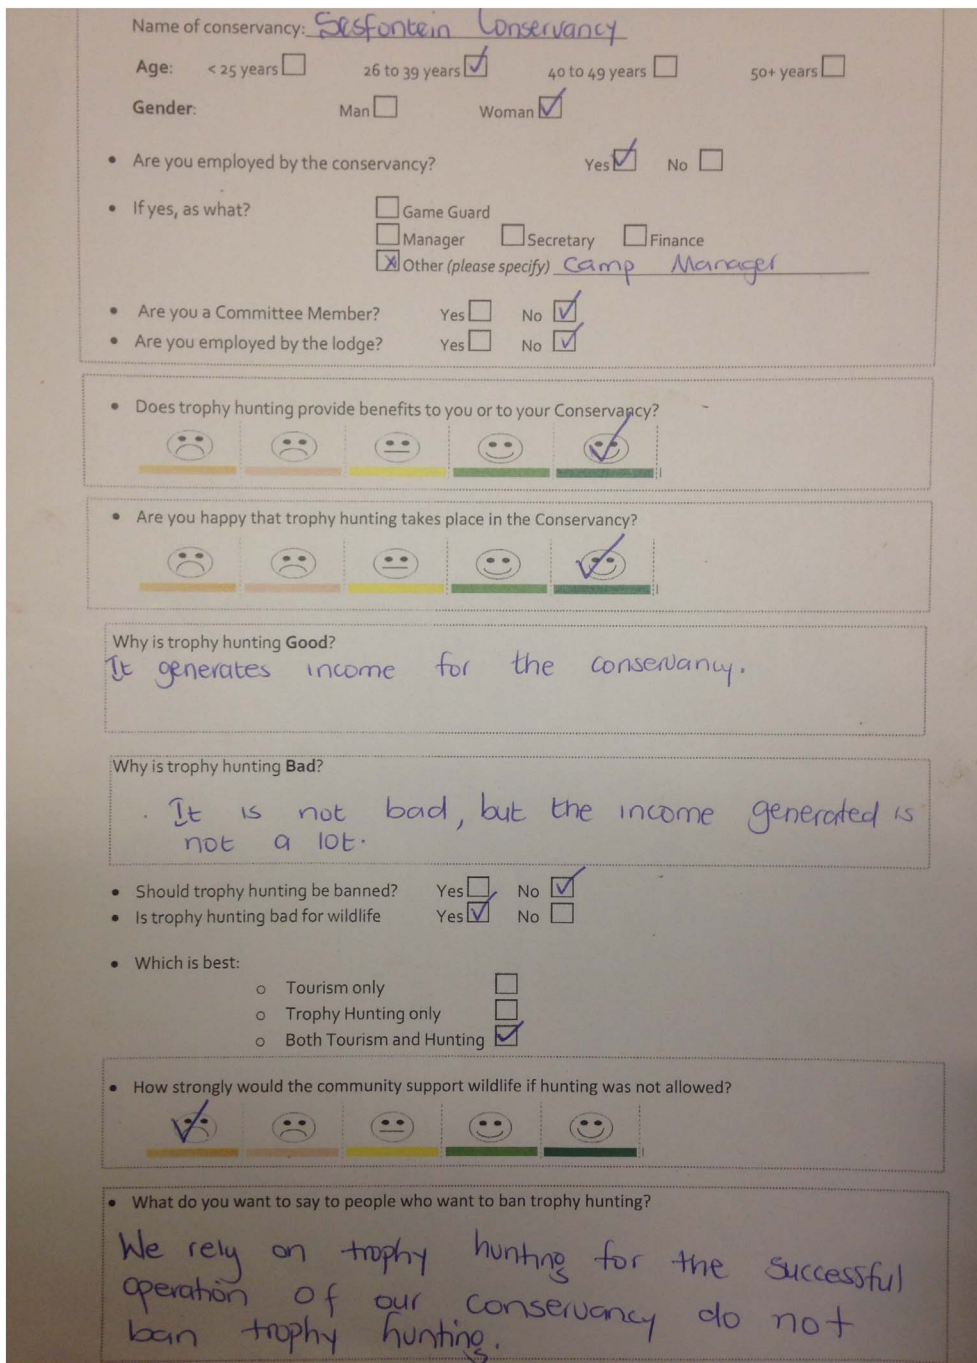 Name of conservancy: Sesfontein Conservancy
Age: < 25 years 26 to 39 years 40 to 49 years 50+ years
Gender: Man Woman
• Are you employed by the conservancy? Yes No
• If yes, as what? Game Guard
Manager Secretary Finance
Other (please specify) Camp Manager
• Are you a Committee Member? Yes No
• Are you employed by the lodge? Yes No
• Does trophy hunting provide benefits to you or to your Conservancy?
• Are you happy that trophy hunting takes place in the Conservancy?
Why is trophy hunting Good?
It generates income for the conservancy.
Why is trophy hunting Bad?
It is not bad, but the income generated is
not a lot.
• Should trophy hunting be banned? Yes No
• Is trophy hunting bad for wildlife Yes No
• Which is best:
o Tourism only
o Trophy Hunting only
o Both Tourism and Hunting
• How strongly would the community support wildlife if hunting was not allowed?
• What do you want to say to people who want to ban trophy hunting?
We rely on trophy hunting for the successful
operation of our conservancy do not
ban trophy hunting.